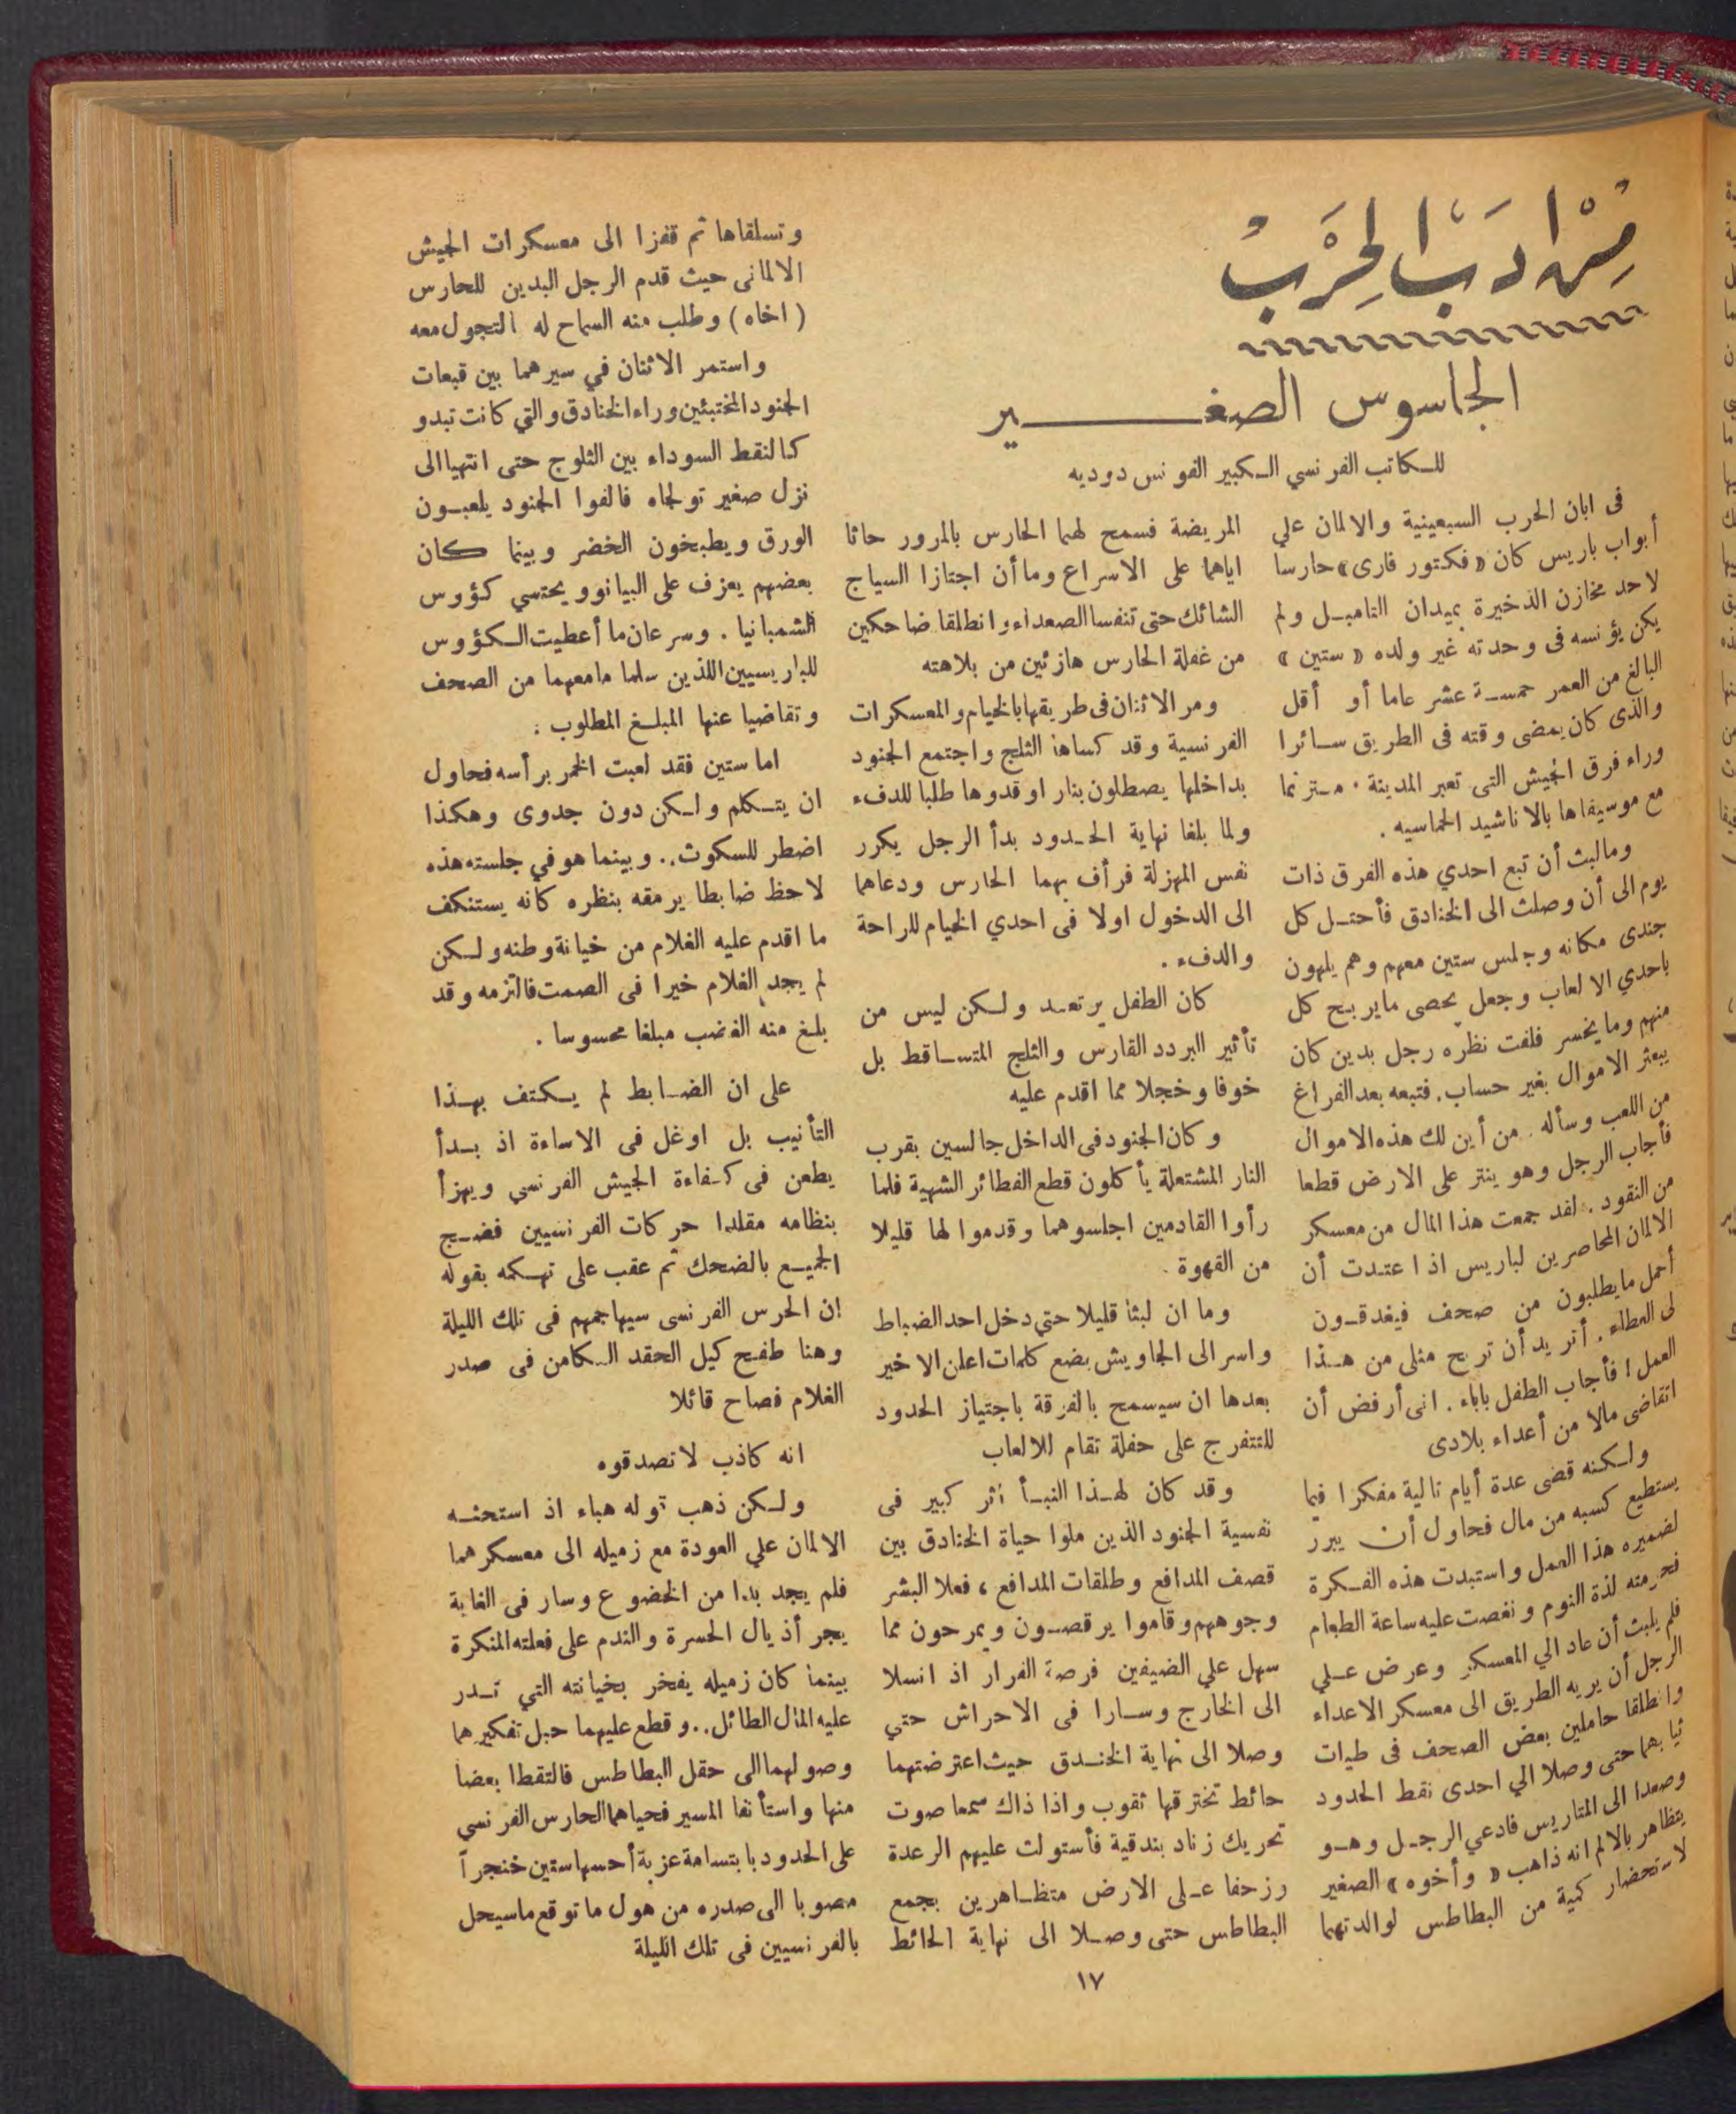 من ادب الحرب
الجاسوس الصغير
للكاتب الفرنسي الكبير الفونس دوديه
فى ابان الحرب السبعينية والالمان علي
أبواب باريس كان « فكتور فارى » حارسا
لاحد مخازن الذخيرة بميدان التامبل ولم
يكن يؤنسه فى وحدته غير ولده « ستين »
البالغ من العمر خمسة عشر عاما أو أقل
والذى كان يمضى وقته فى الطريق سائرا
وراء فرق الجيش التى تعبر المدينة . مترنما
مع موسيقاها بالاناشيد الحماسيه .
ومالبث أن تبع احدي هذه الفرق ذات
يوم الى أن وصلت الى الخنادق فأحتل كل
جندى مكانه وجلس ستين معهم وهم يلهون
باحدي الالعاب وجعل يحصى مايربح كل
منهم ومايخسر فلفت نظره رجل بدين كان
يبعثر الاموال بغير حساب. فتبعه بعد الفراغ
من اللعب وسأله . من أين لك هذه الاموال
فأجاب الرجل وهو ينثر على الارض قطعا
من النقود . لقد جمعت هذا المال من معسكر
الالمان المحاصرين لباريس اذ اعتدت أن
أحمل مايطلبون من صحف فيغدقون
لى العطاء . أتريد أن تربح مثلى من هذا
العمل ؟ فأجاب الطفل باباء . انى أرفض أن
اتقاضى مالا من أعداء بلادى
ولكنه قضى عدة أيام تالية مفكرا فيما
يستطيع كسبه من مال فحاول أن يبرر
لضميره هذا العمل واستبدت هذه الفكرة
فحرمته لذة النوم ونغصت عليه ساعة الطعام
فلم يلبث أن عاد الي المعسكر وعرض علي
الرجل أن يريه الطريق الى معسكر الاعداء
وانطلقا حاملين بعض الصحف فى طيات
ثيابهما حتى وصلا الي احدى نقط الحدود
وصعدا الى المتاريس فادعي الرجل وهو
يتظاهر بالالم انه ذاهب « وأخوه » الصغير
لاستحضار كمية من البطاطس لوالدتهما
المريضة فسمح لهما الحارس بالمرور حاثا
اياهما على الاسراع وما أن اجتازا السياج
الشائك حتى تنفسا الصعداء وانطلقا ضاحكين
من غفلة الحارس هازئين من بلاهته
ومر الاثنان فى طريقهما بالخيام والمعسكرات
الفرنسية وقد كساها الثلج واجتمع الجنود
بداخلها يصطلون بنار اوقدوها طلبا للدفء
ولما بلغا نهاية الحدود بدأ الرجل يكرر
نفس المهزلة فرأف بهما الحارس ودعاهما
الى الدخول اولا فى احدي الخيام للراحة
والدفء .
كان الطفل يرتعد ولكن ليس من
تأثير البردد القارس والثلج المتساقط بل
خوفا وخجلا مما اقدم عليه
وكان الجنود فى الداخل جالسين بقرب
النار المشتعلة يأكلون قطع الفطائر الشهية فلما
رأوا القادمين اجلسوهما وقدموا لها قليلا
من القهوة .
وما ان لبثا قليلا حتي دخل احد الضباط
واسر الى الجاويش بضع كلمات اعلن الاخير
بعدها ان سيسمح بالفرقة باجتياز الحدود
للتتفرج على حفلة تقام للالعاب
وقد كان لهذا النبأ أثر كبير فى
نفسية الجنود الذين ملوا حياة الخنادق بين
قصف المدافع وطلقات المدافع ، فعلا البشر
وجوههم وقاموا يرقصون ويمرحون مما
سهل علي الضيفين فرصة الفرار اذ انسلا
الى الخارج وسارا فى الاحراش حتي
وصلا الى نهاية الخندق حيث اعترضتهما
حائط تخترقها ثقوب واذا ذاك سمعا صوت
تحريك زناد بندقية فأستولت عليهم الرعدة
رزحفا على الارض متظاهرين بجمع
البطاطس حتى وصلا الى نهاية الحائط
وتسلقاها ثم قفزا الى معسكرات الجيش
الالمانى حيث قدم الرجل البدين للحارس
( اخاه ) وطلب منه السماح له التجول معه
واستمر الاثنان في سيرهما بين قبعات
الجنود المختبئين وراء الخنادق والتي كانت تبدو
كالنقط السوداء بين الثلوج حتى انتهيا الى
نزل صغير تولجاه فالفوا الجنود يلعبون
الورق ويطبخون الخضر وبينما كان
بعضهم يعزف على البيانو ويحتسي كؤوس
الشمبانيا . وسرعان ما أعطيت الكؤوس
للباريسيين اللذين سلما مامعهما من الصحف
وتقاضيا عنها المبلغ المطلوب :
اما ستين فقد لعبت الخمر برأسه فحاول
ان يتكلم ولكن دون جدوى وهكذا
اضطر للسكوت .. وبينما هو في جلسته هذه
لاحظ ضابطا يرمقه بنظره كانه يستنكف
ما اقدم عليه الغلام من خيانة وطنه ولكن
لم يجد الغلام خيرا فى الصمت فالتزمه وقد
بلغ منه الغضب مبلغا محسوسا .
على ان الضابط لم يكتف بهذا
التأنيب بل اوغل فى الاساءة اذ بدأ
يطعن فى كفاءة الجيش الفرنسي ويهزأ
بنظامه مقلدا حركات الفرنسيين فضج
الجميع بالضحك ثم عقب على تهكمه بقوله
إن الحرس الفرنسى سيهاجمهم فى تلك الليلة
وهنا طفح كيل الحقد الكامن فى صدر
الغلام فصاح قائلا
انه كاذب لا تصدقوه
ولكن ذهب قوله هباء اذ استحثه
الالمان علي العودة مع زميله الى معسكرهما
فلم يجد بدا من الخضوع وسار فى الغابة
يجر أذيال الحسرة والندم على فعلته المنكرة
بينما كان زميله يفخر بخيانته التي تدر
عليه المال الطائل .. وقطع عليهما حبل تفكيرهما
وصولهما الى حقل البطاطس فالتقطا بعضا
منها واستأنفا المسير فحياهما الحارس الفرنسي
على الحدود بابتسامة عزبة أحسها ستين خنجرآ
مصوبا الى صدره من هول ما توقع ماسيحل
بالفرنسيين فى تلك الليلة
١٧